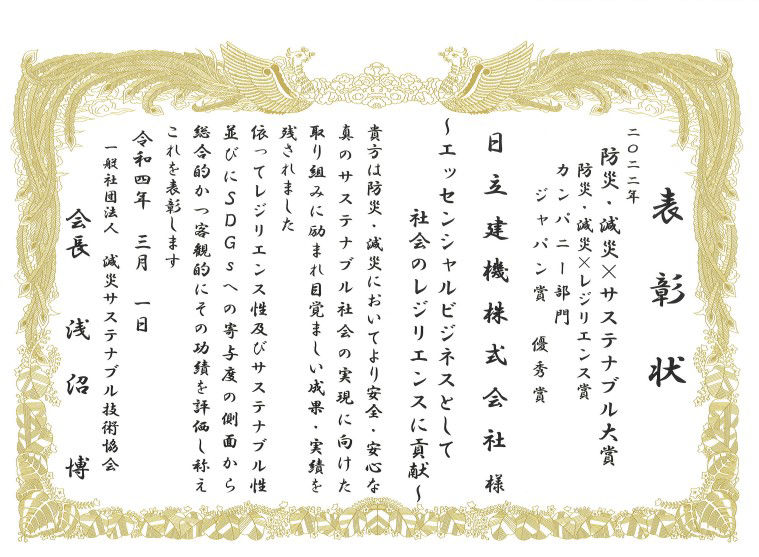 表彰状
二〇二二年
防災・減災×サステナブル大賞
防災・減災×レジリエンス賞
カンパニー部門
ジャパン賞　優秀賞
日立建機株式会社　様
～エッセンシャルビジネスとして
社会のレジリエンスに貢献～
貴方は防災・減災においてより安全・安心な
真のサステナブル社会の実現に向けた
取り組みに励まれ目覚ましい成果・実績を
残されました
依ってレジリエンス性及びサステナブル性
並びにＳＤＧｓへの寄与度の側面から
総合的かつ客観的にその功績を評価し称え
これを表彰します
令和四年　三月　一日
一般社団法人　減災サステナブル技術協会
会長　浅沼　博